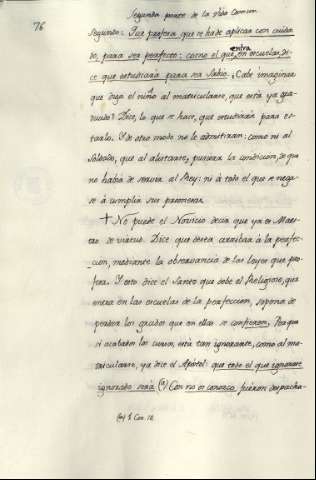 76
Segunda parte de la Vida Comun
Segundo: Que profesa que se hade aplicar con cuida
do, para ser perfecto: como el que entra en escuelas, di
ce que estudiará para ser Sabio. ¿Cabe imaginar
que diga el niño al matricularse, que está ya gra
duado? Dice, lo que se hace, que estudiará para es
tarlo. Y de otro modo no le admitiran: como ni al
Soldado, que al alistarse, pusiera la condicion, de que
no habia de servir al Rey: ni á todo el que se nega
se á cumplir sus promesas.
+ No puede el Novicio decir que ya es Maes
tro de virtud. Dice que desea arribar á la perfec
cion, mediante la observancia de las leyes que pro
fesa. Y esto dice el Santo que debe el Religioso, que
entra en las escuelas de la perfeccion, suponga de
perder los grados que en ellas se confieren. Porque
si acabados los cursos, está tan ignorante, como al ma
tricularse, ya dice el Apóstol: que todo el que ignorante
ignorado será (a) Con no os conozco, fueron despacha-
(a) 1. Cor. 14.